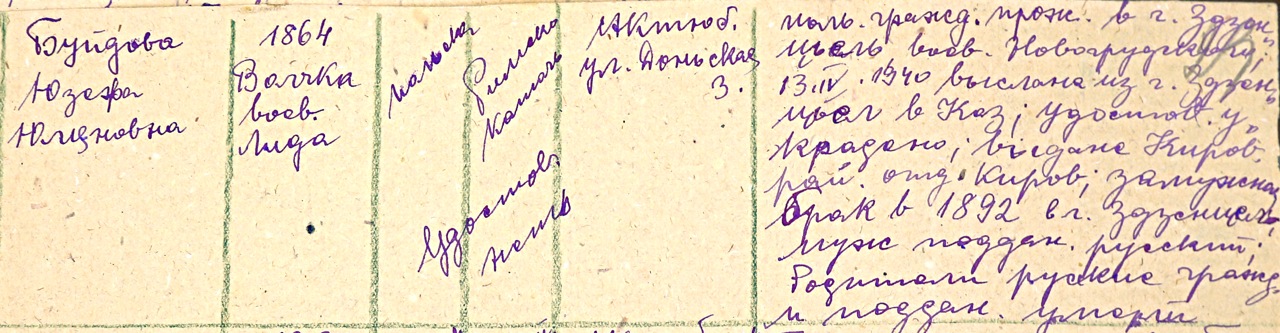 Буйдова
Юзефа
Юлцановна
1864
Вочка
воев.
Лида
польска
Римско
католь
Удостов.
нель
Актюб.
ул. Доньская
3.
поль. гражд. прож. в г. Здзен,,
цьель воев. Новогрудский;
13.IV. 1940 выслана из г. Здзен,,
цьел в Каз; удостов. у,,
крадено; выдане Киров.
рай. отд. Киров; замужная
брак в 1892 в г. Здзенцель,
муж поддан. русский;
Родители руские гражд.
и поддан. умерли